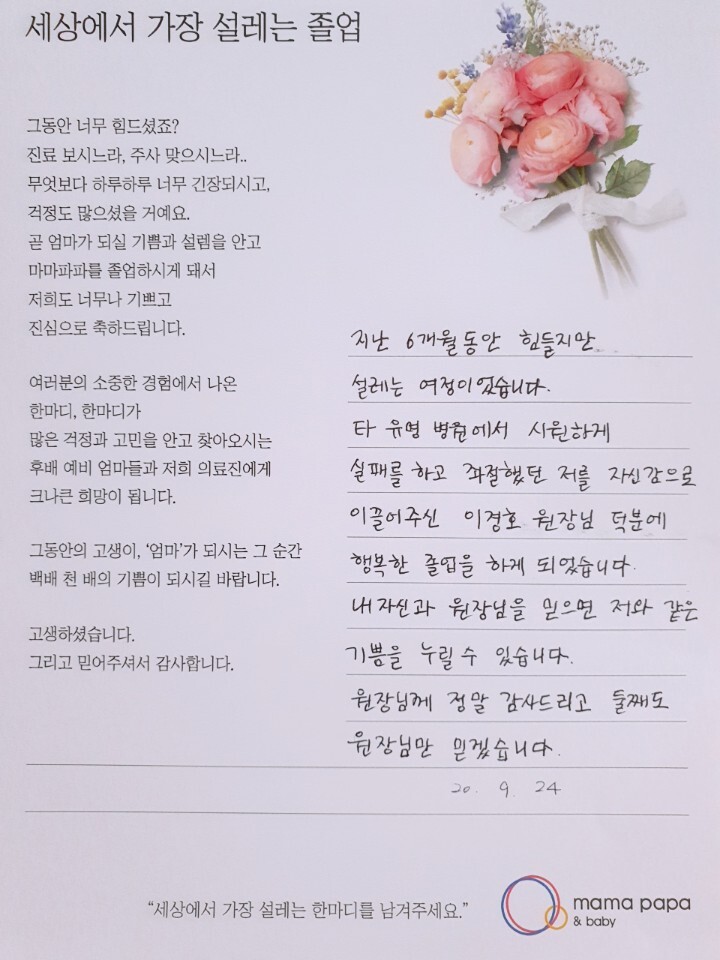 세상에서 가장 설레는 졸업
그동안 너무 힘드셨죠?
진료 보시느라, 주사 맞으시느라..
무엇보다 하루하루 너무 긴장되시고,
걱정도 많으셨을 거예요.
곧 엄마가 되실 기쁨과 설렘을 안고
마마파파를 졸업하시게 돼서
저희도 너무나 기쁘고
진심으로 축하드립니다.
여러분의 소중한 경험에서 나온
한마디, 한마디가
많은 걱정과 고민을 안고 찾아오시는
후배 예비 엄마들과 저희 의료진에게
크나큰 희망이 됩니다.
그동안의 고생이, ‘엄마’가 되시는 그 순간
백배 천 배의 기쁨이 되시길 바랍니다.
고생하셨습니다.
그리고 믿어주셔서 감사합니다.
지난 6개월동안 힘들지만
설레는 여정이었습니다.
타 유명 병원에서 시원하게
실패를 하고 좌절했던 저를 자신감으로
이끌어주신 이경호 원장님 덕분에
행복한 졸업을 하게 되었습니다.
내 자신과 원장님을 믿으면 저와 같은
기쁨을 누릴 수 있습니다.
원장님께 정말 감사드리고 둘째도
원장님만 믿겠습니다.
20. 9. 24
“세상에서 가장 설레는 한마디를 남겨주세요.”
mama papa
& baby